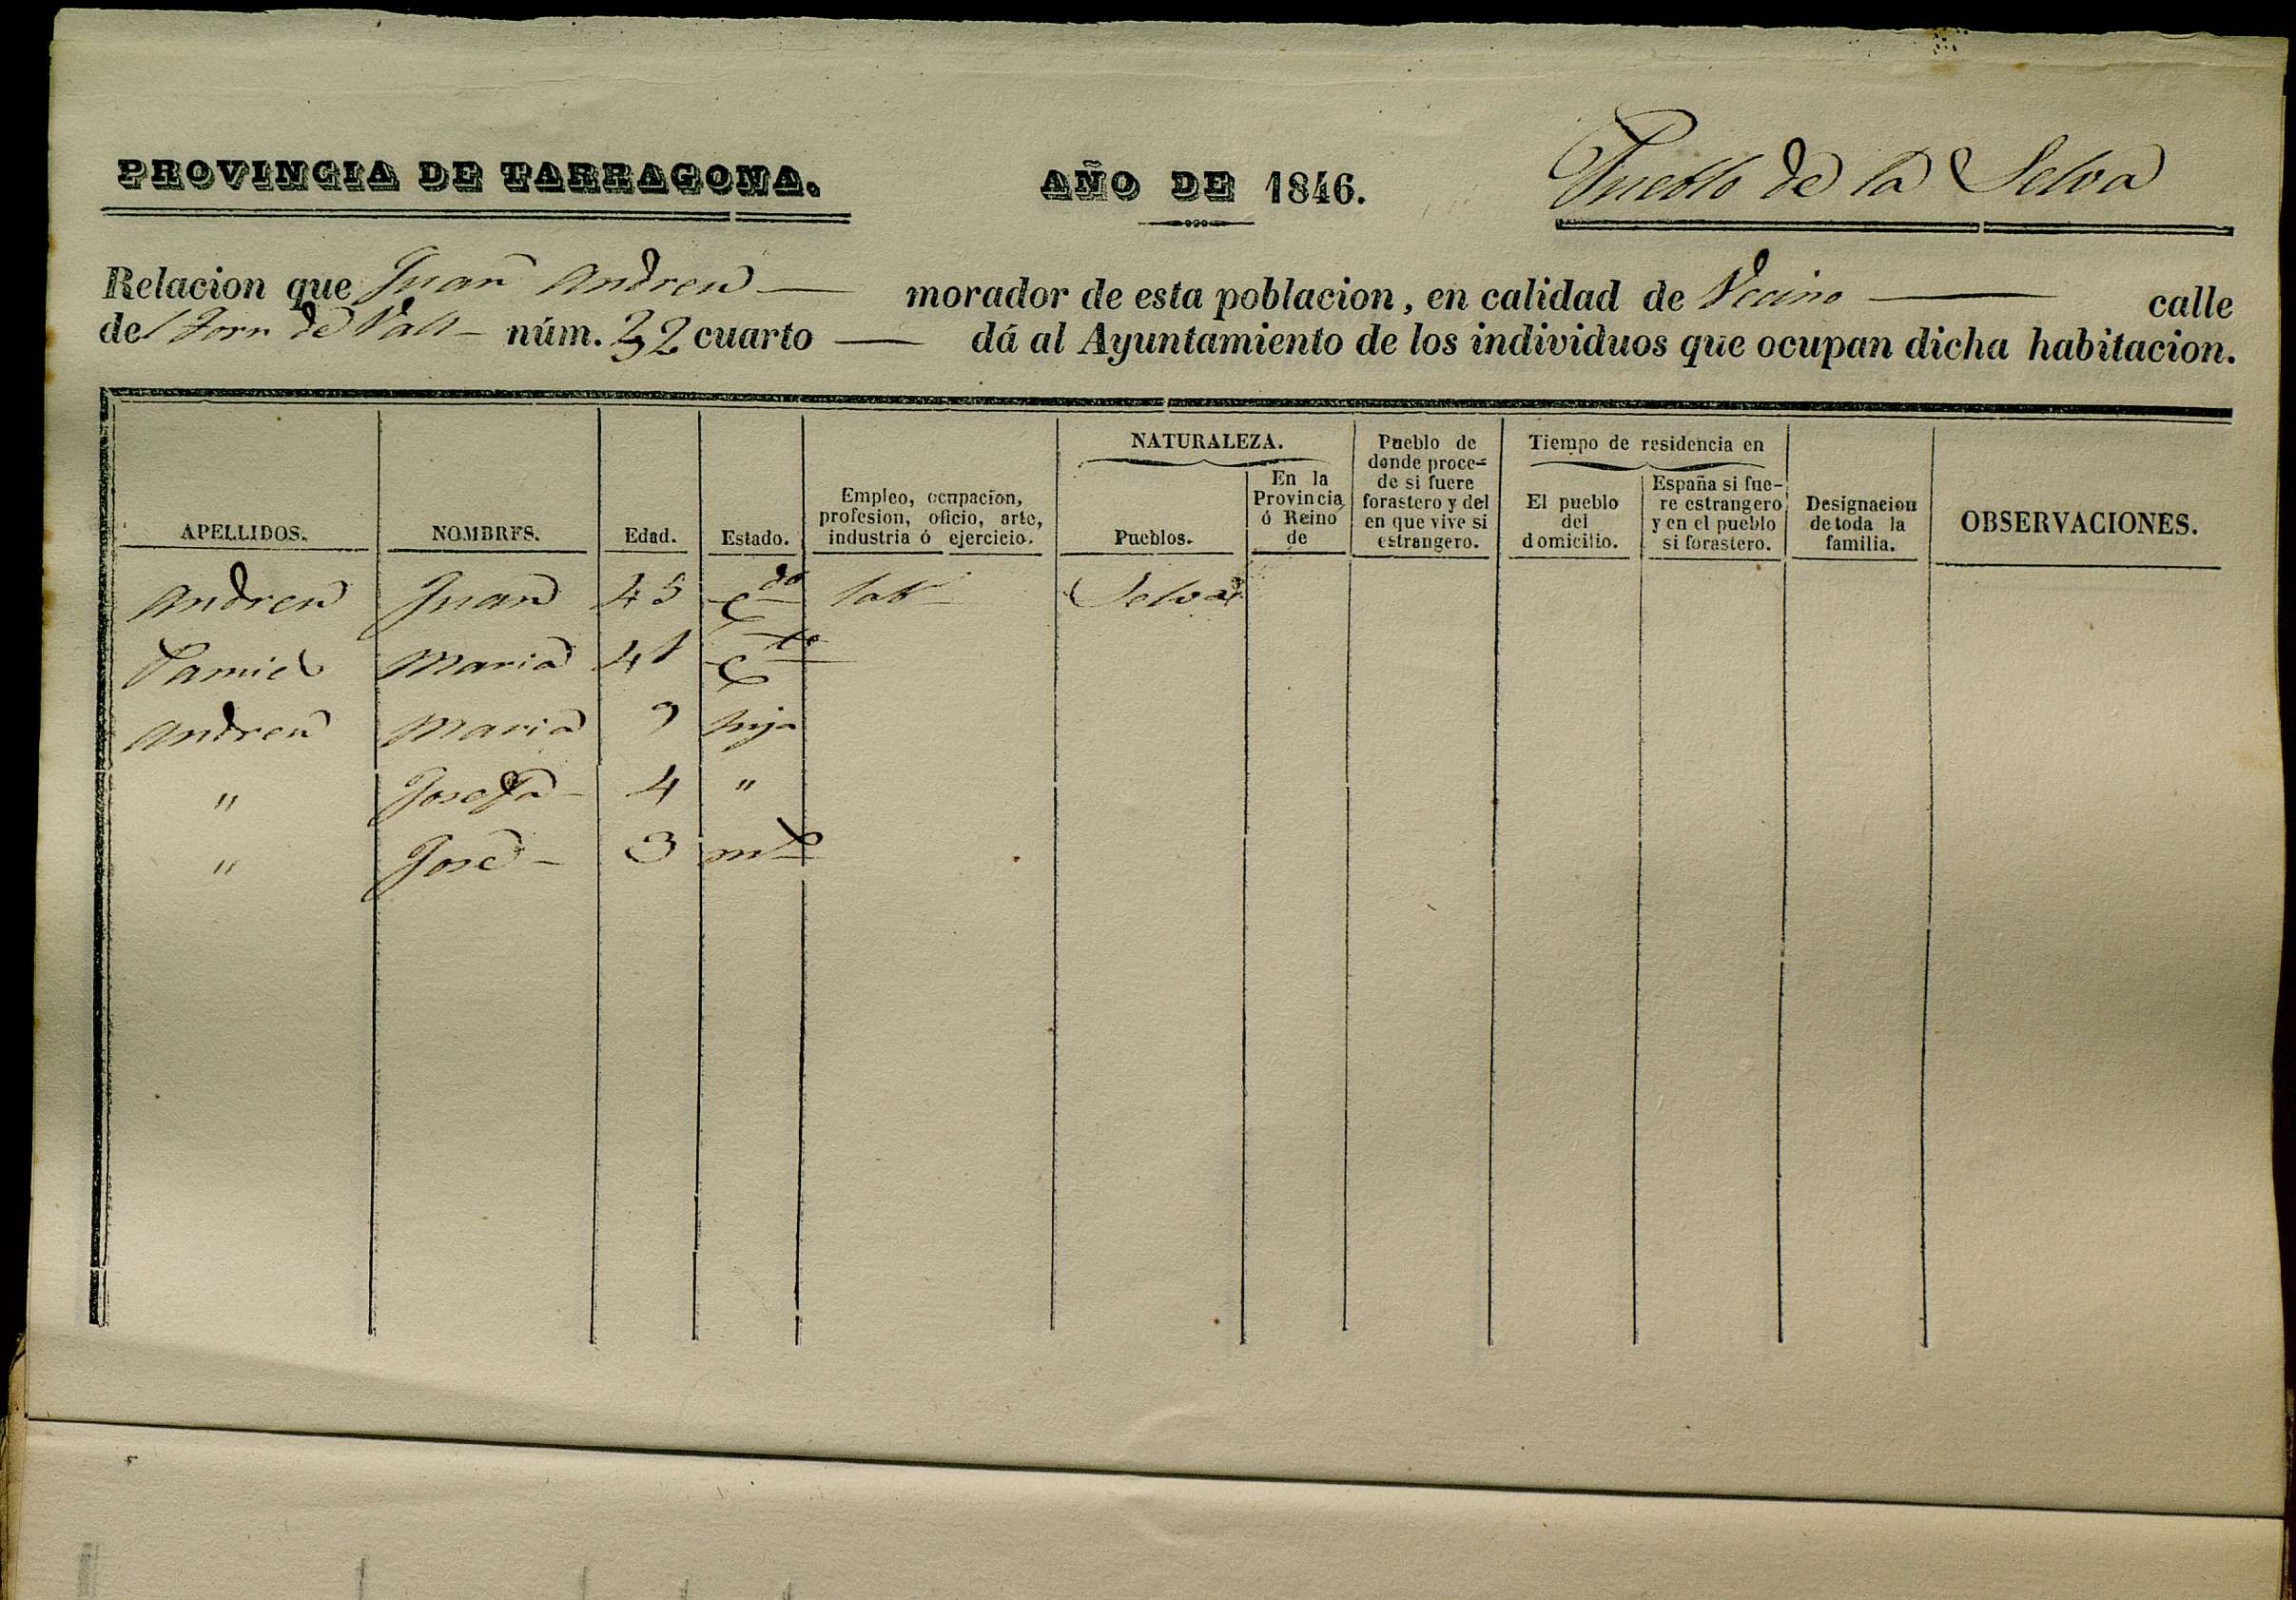 PROVINCIA DE TARRAGONA. AÑO DE 1846. Pueblo de la Selva
Relacion que Juan Andreu — morador de esta poblacion, en calidad de Vecino — calle
del Forn de Vall — núm. 32 cuarto — dá al Ayuntamiento de los individuos que ocupan dicha habitacion.
APELLIDOS.
NOMBRES.
Edad.
Estado.
Empleo, ocupacion,
profesion, oficio, arte,
industria ó ejercicio.
NATURALEZA.
Pueblos.
En la
Provincia
ó Reino
de
Pueblo de
donde proce=
de si fuere
forastero y del
en que vive si
estrangero.
Tiempo de residencia en
El pueblo
del
domicilio.
España si fue-
re estrangero
y en el pueblo
si forastero.
Designacion
de toda la
familia.
OBSERVACIONES.
Andreu Juan 45 Cdo lab Selva
Pamies Maria 41 Cta
Andreu Maria 9 hija
" Josefa - 4 "
" José - 3